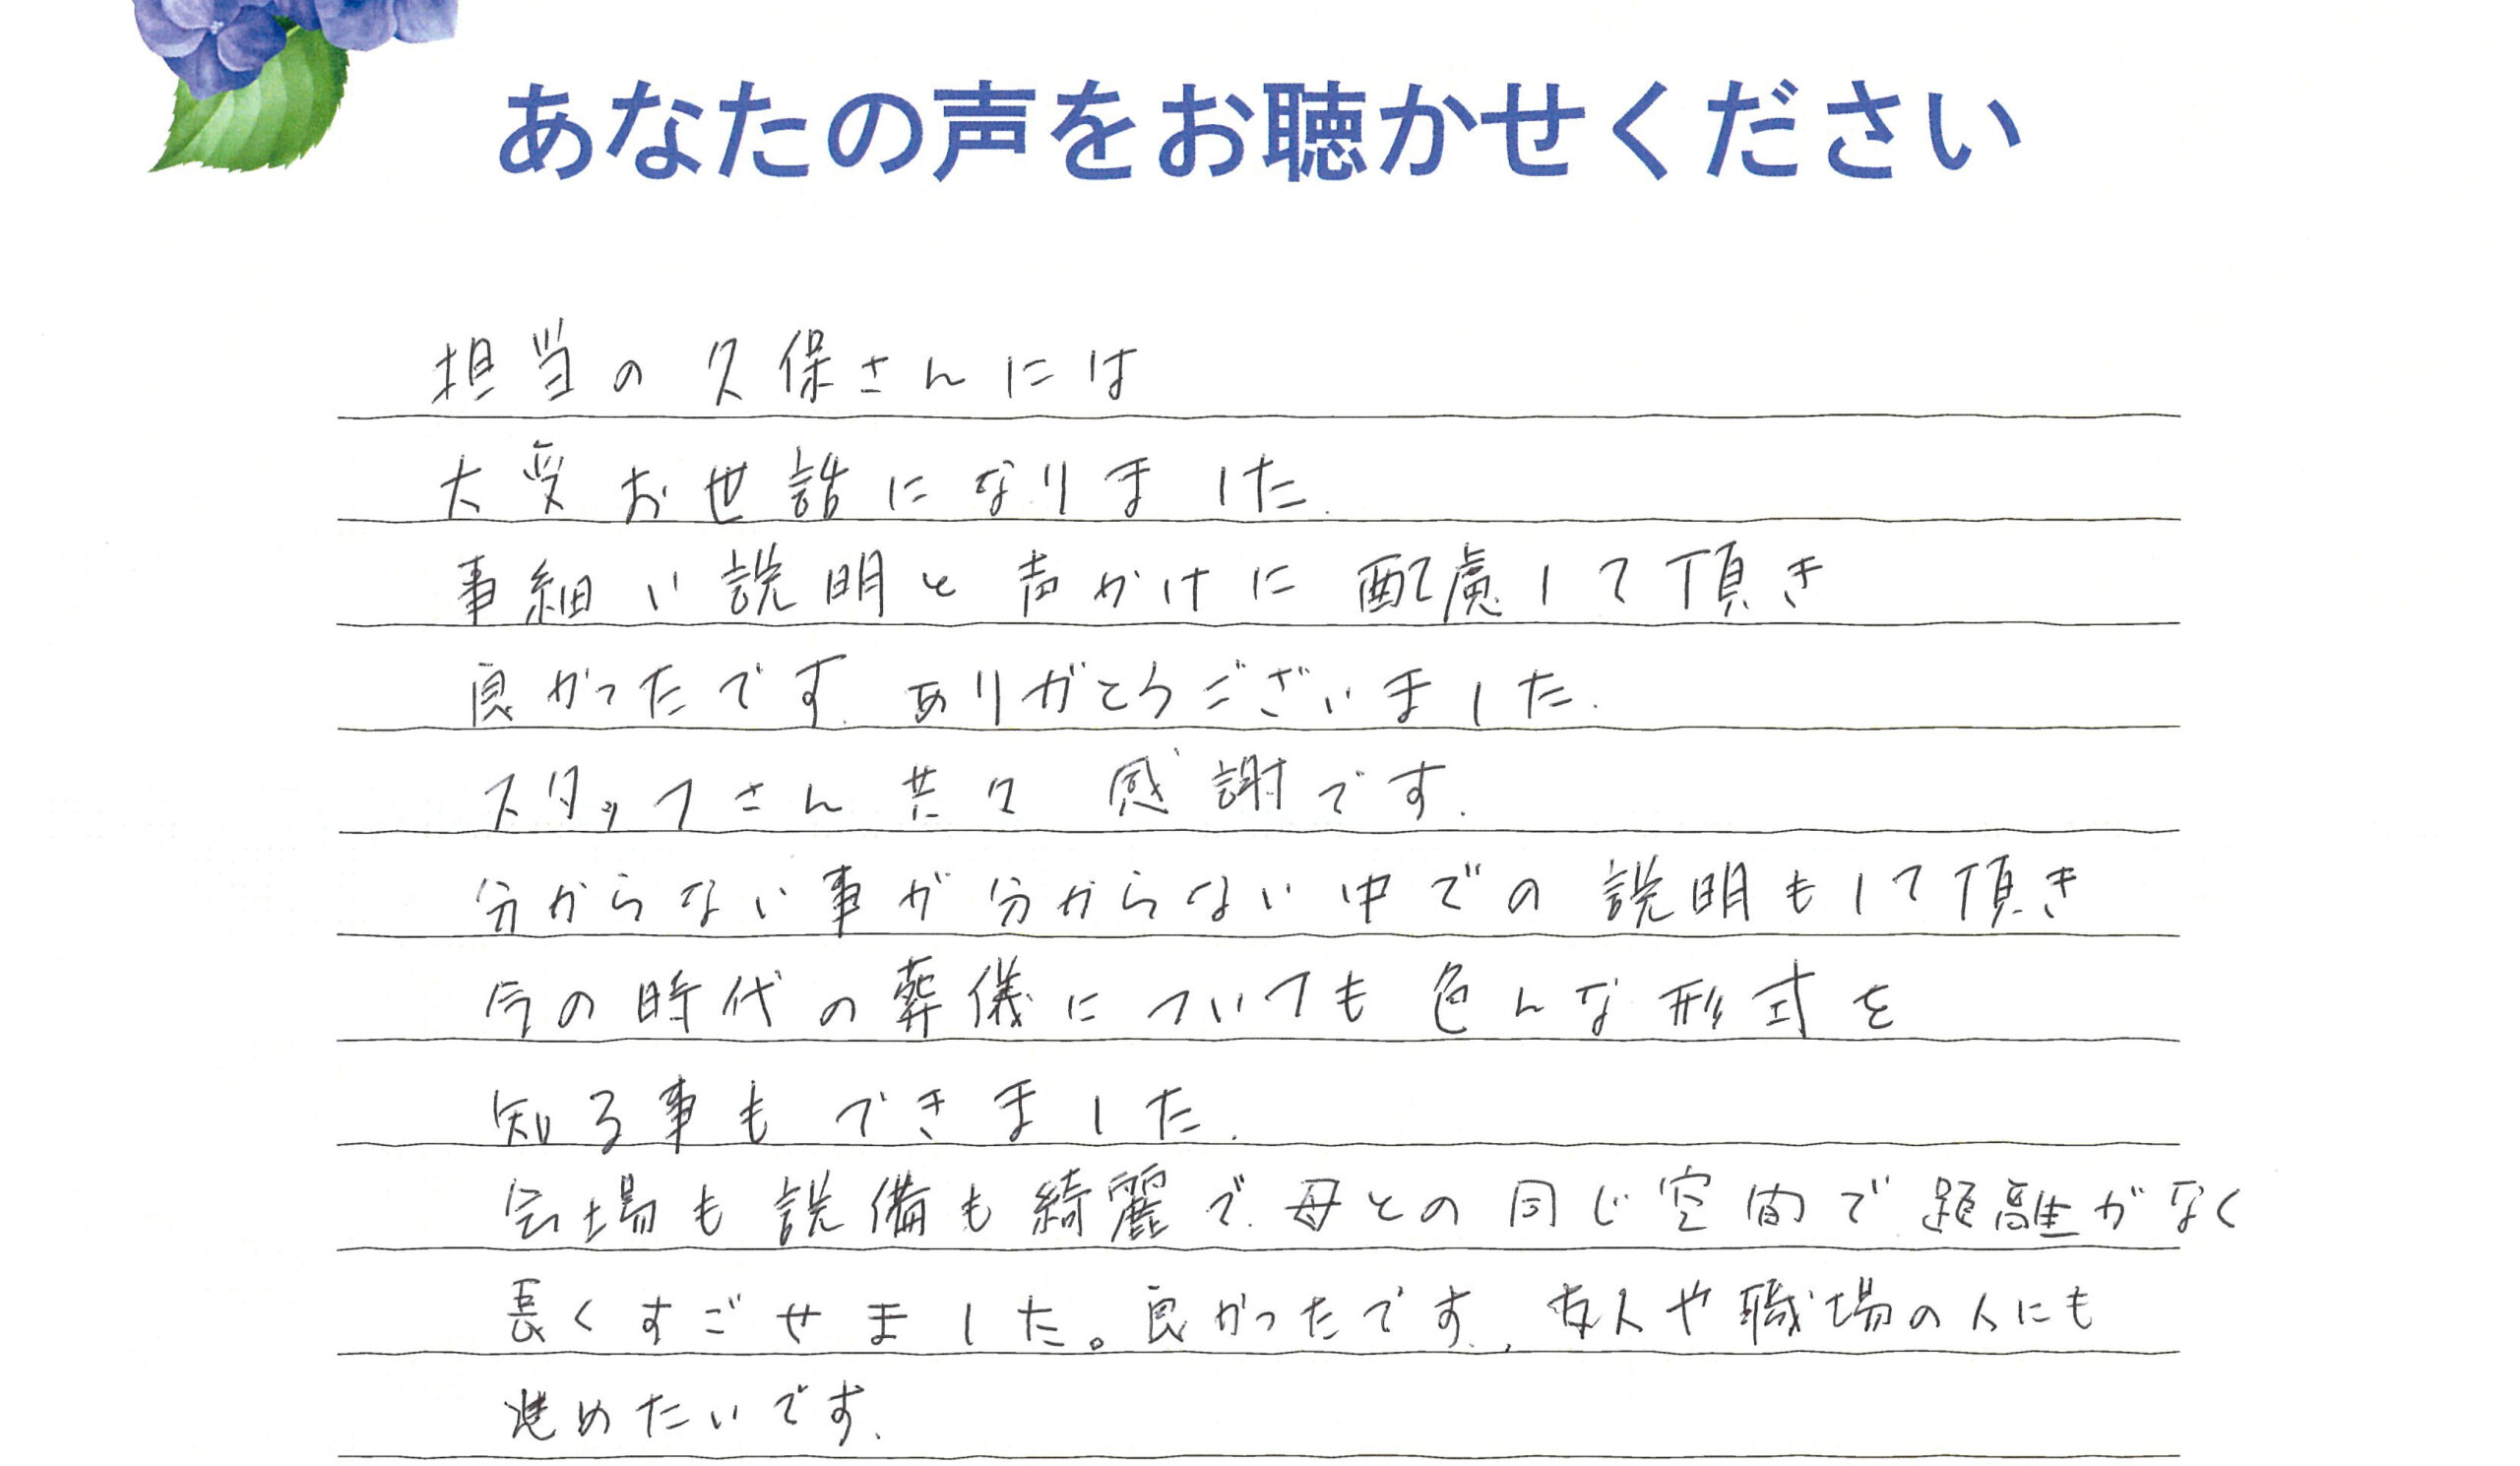 あなたの声をお聴かせください
担当の久保さんには
大変お世話になりました.
事細い説明と声かけに配慮して頂き
良かったです. ありがとうございました.
スタッフさん共々 感謝です.
分からない事が分からない中での説明もして頂き
今の時代の葬儀についても色んな形式を
知る事もできました.
会場も設備も綺麗で. 母との同じ空間で距離がなく
長くすごせました。良かったです. 友人や職場の人にも
進めたいです.